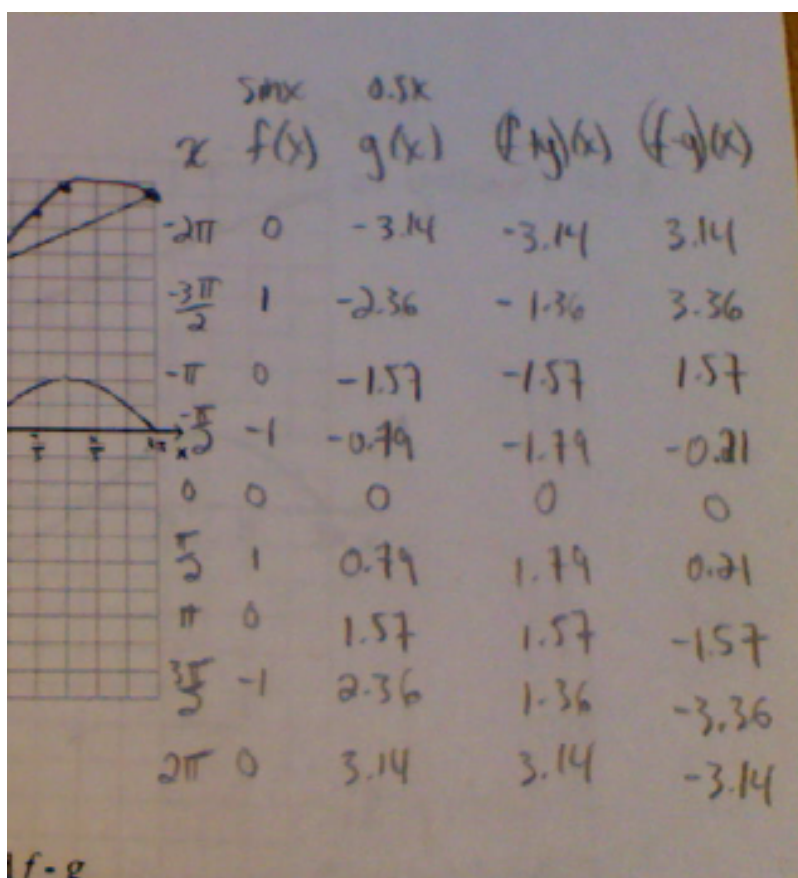 sinx 0.5x
x f(x) g(x) (f+g)(x) (f-g)(x)
-2π 0 -3.14 -3.14 3.14
-3π/2 1 -2.36 -1.36 3.36
-π 0 -1.57 -1.57 1.57
-π/2 -1 -0.79 -1.79 -0.21
0 0 0 0 0
π/2 1 0.79 1.79 0.21
π 0 1.57 1.57 -1.57
3π/2 -1 2.36 1.36 -3.36
2π 0 3.14 3.14 -3.14
x
f - g